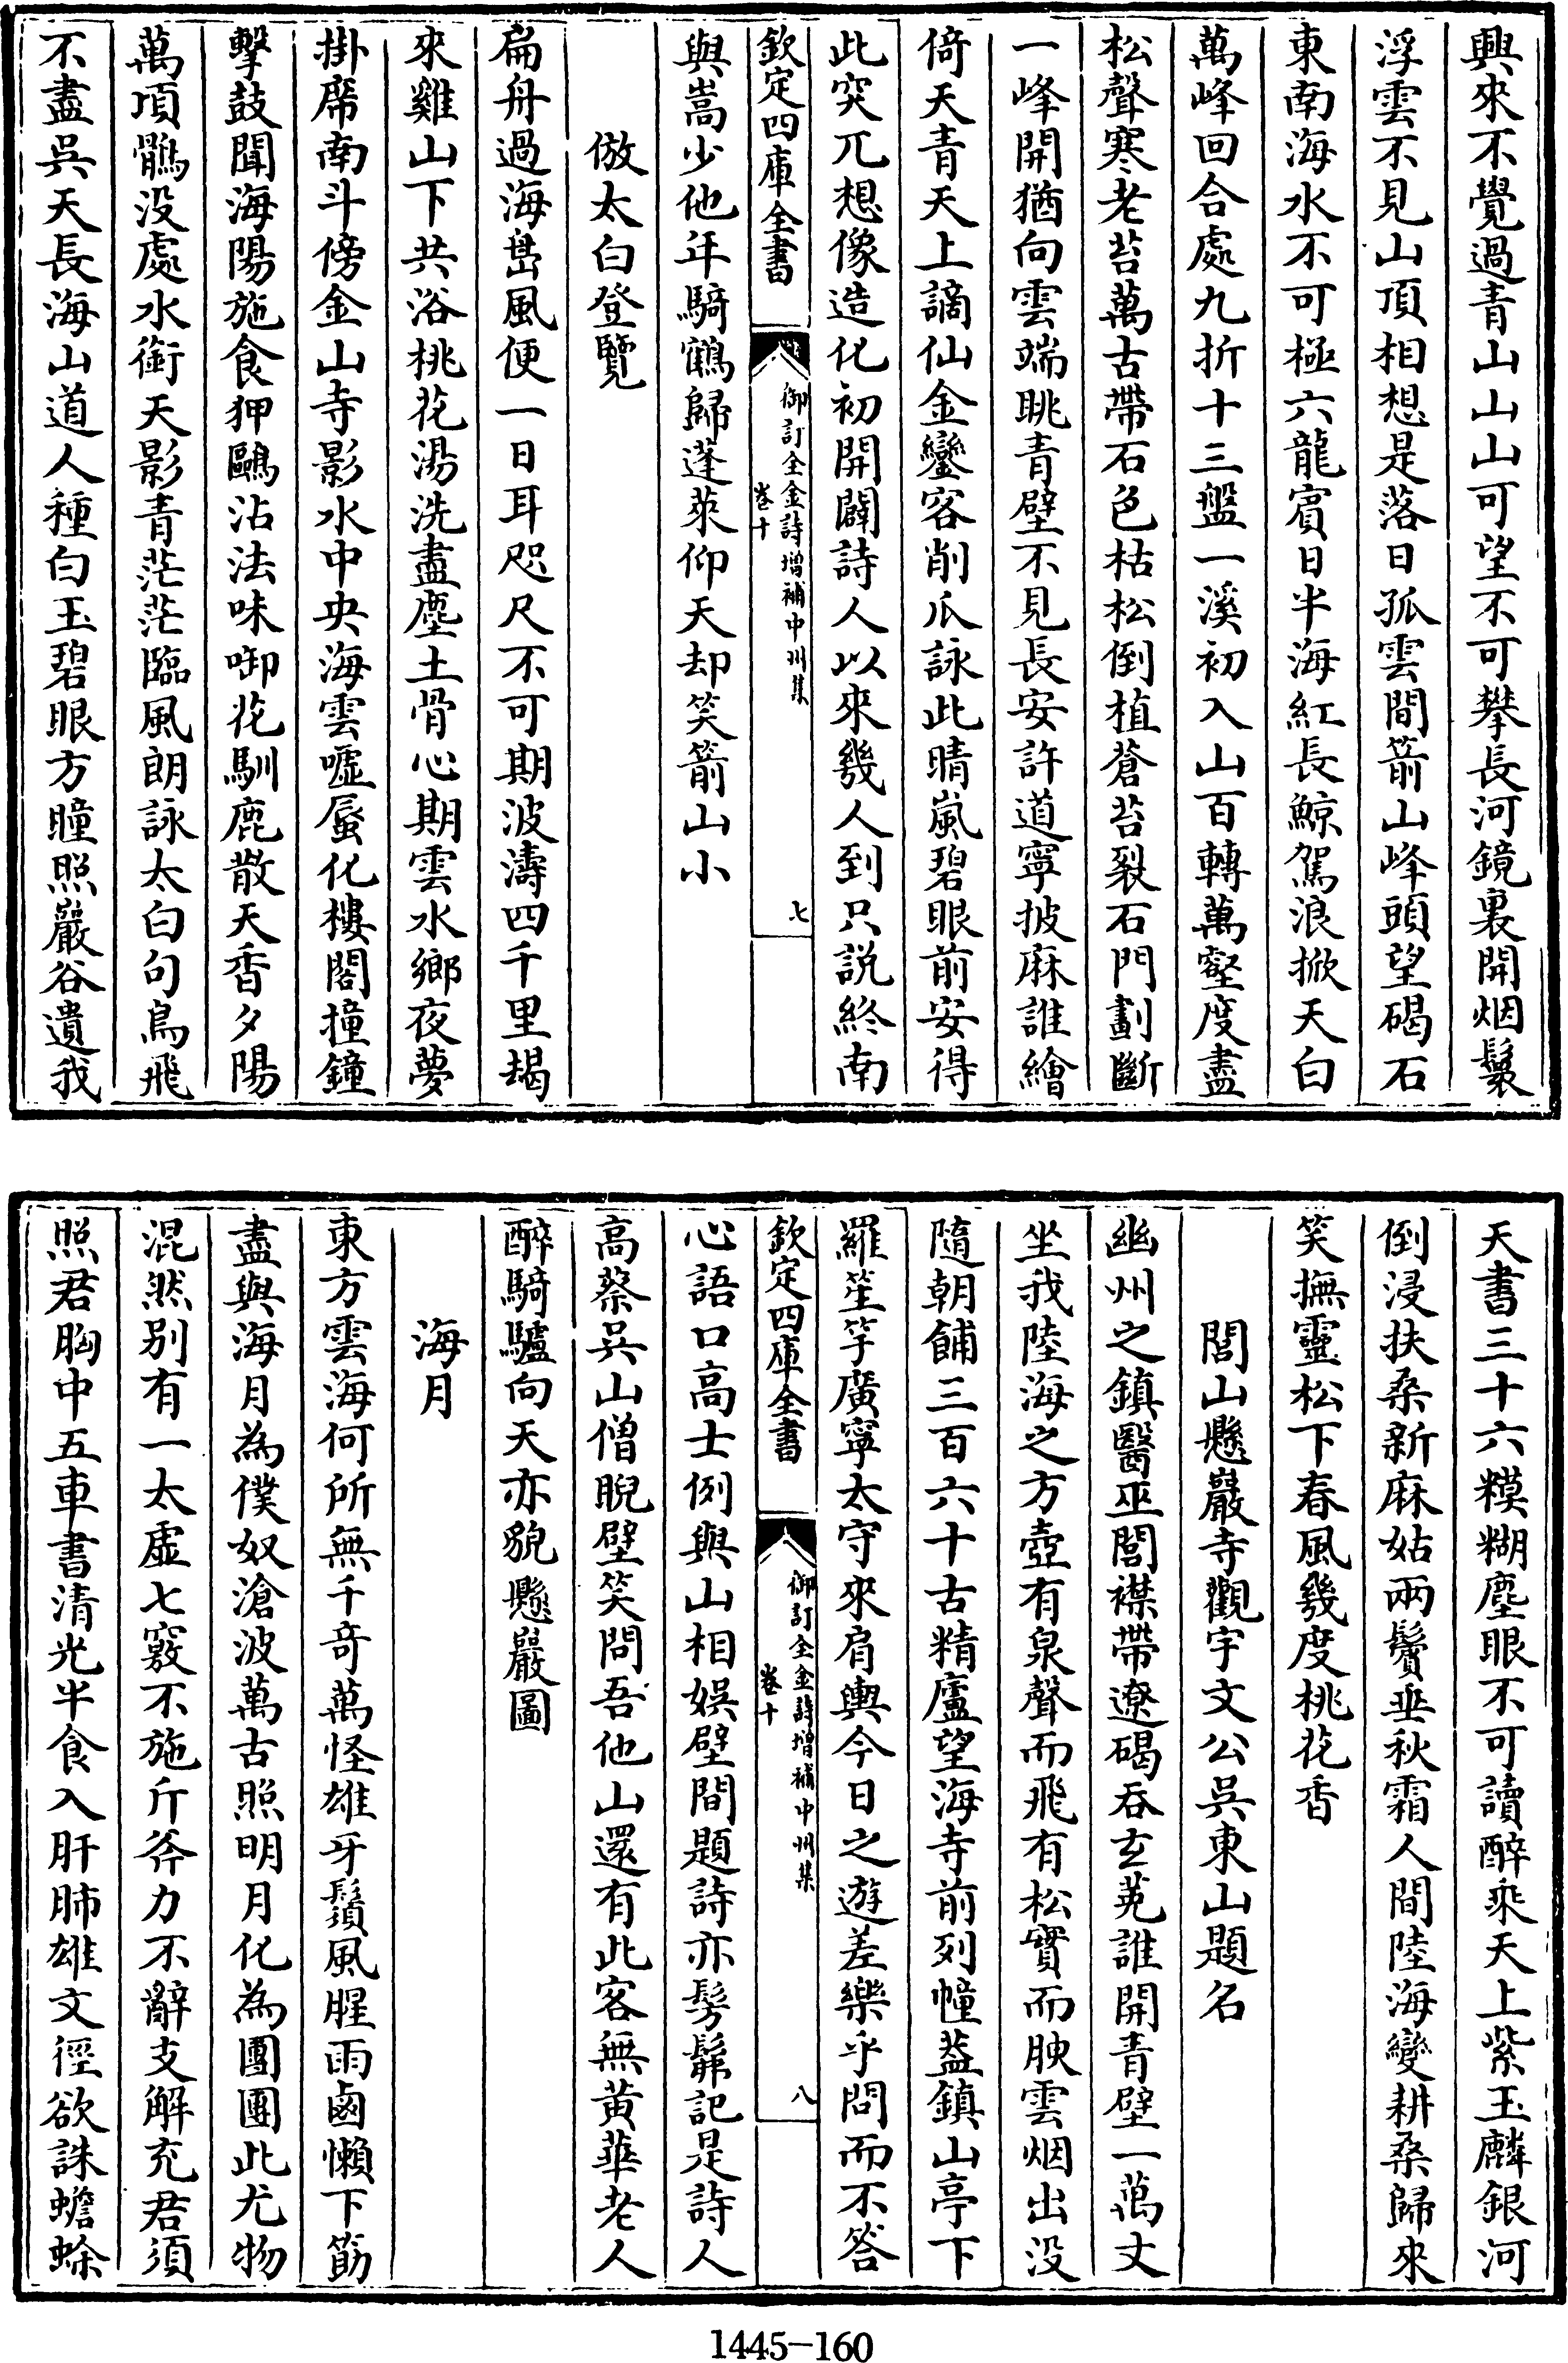 興來不覺過青山山山可望不可攀長河鏡裏開烟鬟
浮雲不見山頂相想是落日孤雲間箭山峰頭望碣石
東南海水不可極六龍賓日半海紅長鯨駕浪掀天白
萬峰回合處九折十三盤一溪初入山百轉萬壑度盡
松聲寒老苔萬古帶石色枯松倒植蒼苔裂石門劃斷
一峰開猶向雲端眺青壁不見長安許道寧披麻誰繪
倚天青天上謫仙金鑾客削瓜詠此晴嵐碧眼前安得
此突兀想像造化初開闢詩人以來幾人到只説終南
欽定四庫全書
御訂全金詩增補中州集
卷十
七
與嵩少他年騎鶴歸蓬萊仰天却笑箭山小
倣太白登覽
扁舟過海㠀風便一日耳咫尺不可期波濤四千里朅
來雞山下共浴桃花湯洗盡塵土骨心期雲水鄉夜夢
掛席南斗傍金山寺影水中央海雲噓蜃化樓閣撞鐘
擊鼓聞海陽施食狎鷗沾法味啣花馴鹿散天香夕陽
萬頃鶻没處水銜天影青茫茫臨風朗詠太白句鳥飛
不盡吳天長海山道人種白玉碧眼方瞳照巖谷遺我
天書三十六糢糊塵眼不可讀醉乘天上紫玉麟銀河
倒浸扶桑新麻姑兩鬢垂秋霜人間陸海變耕桑歸來
笑撫靈松下春風幾度桃花香
閭山懸巖寺觀宇文公吳東山題名
幽州之鎮醫巫閭襟帶遼碣吞玄菟誰開青壁一萬丈
坐我陸海之方壺有泉聲而飛有松實而腴雲烟出没
隨朝餔三百六十古精廬望海寺前列幢蓋鎮山亭下
羅笙竽廣寧太守來肩輿今日之遊差樂乎問而不答
欽定四庫全書
御訂全金詩增補中州集
卷十
八
心語口高士例與山相娛壁間題詩亦髣髴記是詩人
高蔡吳山僧睨壁笑問吾他山還有此客無黃華老人
醉騎驢向天亦貌懸巖圖
海月
東方雲海何所無千奇萬怪雄牙鬚風腥雨鹵懶下筯
盡與海月為僕奴滄波萬古照明月化為團團此尤物
混然别有一太虛七竅不施斤斧力不辭支解充君須
照君胸中五車書清光半食入肝肺雄文徑欲誅蟾蜍
1445-160